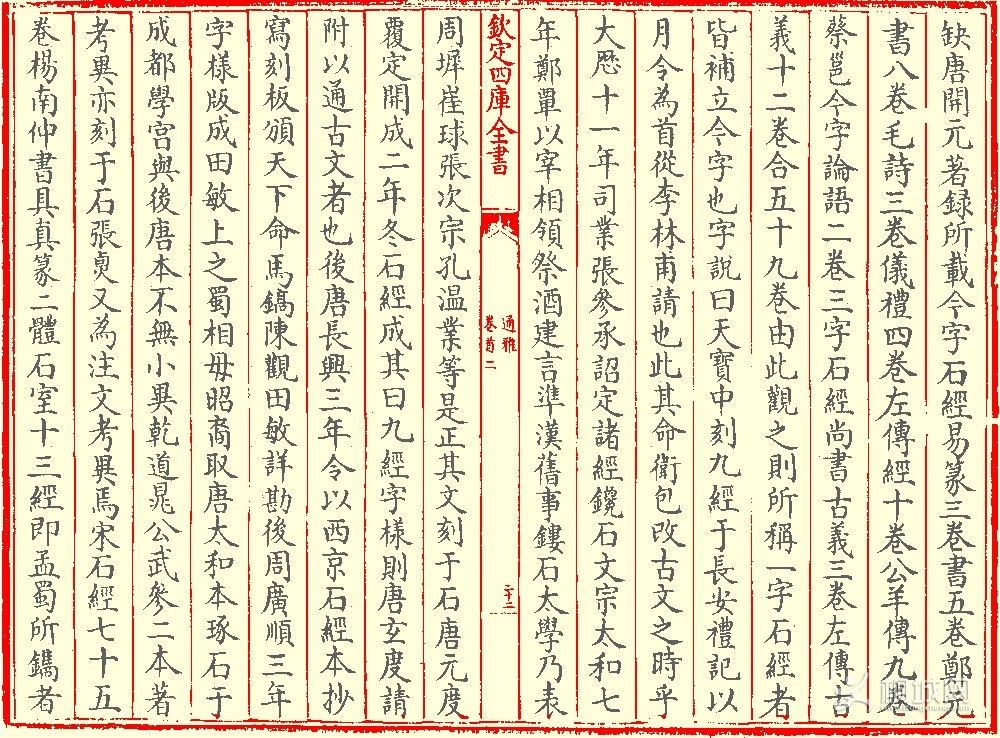 缺唐開元著録所載今字石經易篆三卷書五卷鄭𤣥
書八卷毛詩三卷儀禮四卷左傳經十卷公羊傳九卷
蔡邕今字論語二卷三字石經尚書古義三卷左傳古
義十二卷合五十九卷由此觀之則所稱一字石經者
皆補立今字也字說曰天寶中刻九經于長安禮記以
月令為首從李林甫請也此其命衛包改古文之時乎
大厯十一年司業張參承詔定諸經鑱石文宗太和七
年鄭覃以宰相領祭酒建言準漢舊事鏤石太學乃表
欽定四庫全書
通雅
卷首二
二十二
周墀崔球張次宗孔温業等是正其文刻于石唐元度
覆定開成二年冬石經成其曰九經字様則唐玄度請
附以通古文者也後唐長興三年令以西京石經本抄
寫刻板頒天下命馬鎬陳觀田敏詳勘後周廣順三年
字様版成田敏上之蜀相毋昭裔取唐太和本琢石于
成都學宫與後唐本不無小異乾道晁公武參二本著
考異亦刻于石張㚖又為注文考異焉宋石經七十五
卷楊南仲書具真篆二體石室十三經即孟蜀所鐫者